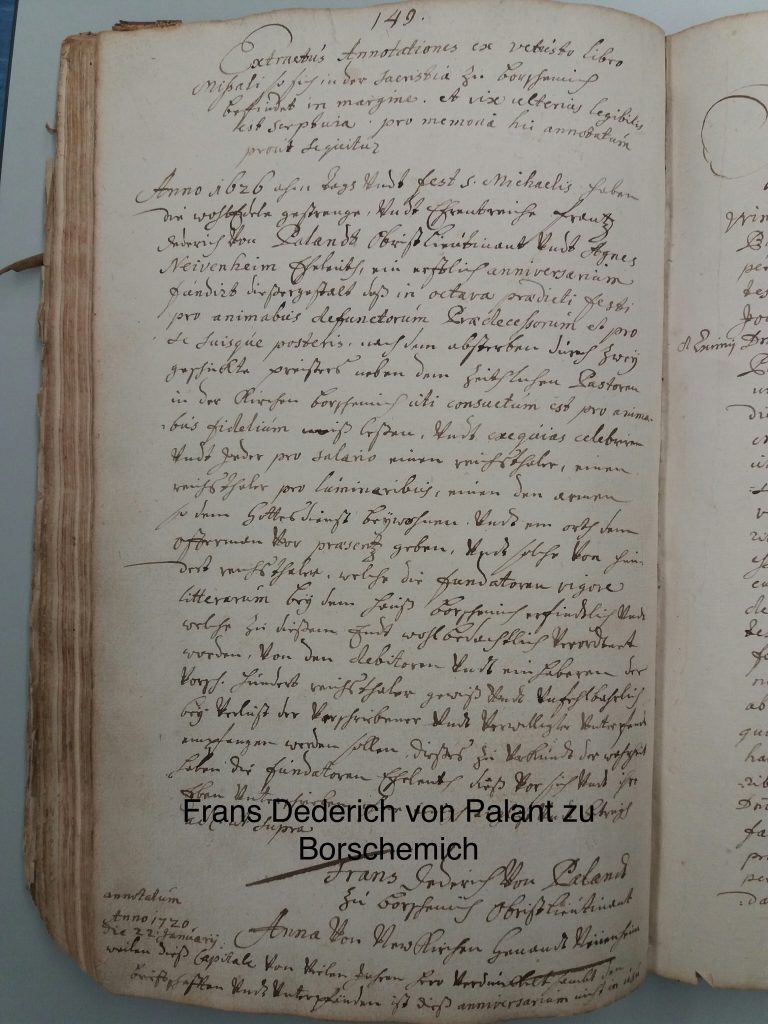 149.
Extractus Annotationes ex vetusto libro
Missali so sich in der sacristia zu borschemich
befindet in margine. et vix ulterius legibilis
est scriptura. pro memoria hic annotatum
prout sequitur
Anno 1626 ahm tags Undt fest S. Michaelis haben
die wohlEdele gestrenge, Undt Ehrentreiche frantz
dederich von Palandt Obristlieutinant Undt Agnes
Neivenheim Eheleuth, ein erstlich anniversarium
fundirt diessergestalt dass in octava praedicti festi
pro animabus defunctorum Praedecessorum et pro
se suisque posteris, nach dem absterben durch zwey
geschickte preisters neben dem zeithlichen Pastoren
in der Kirchen borschemich uti consuetum est pro anima-
bus fidelium miss lessen, Undt exequias celebriren
Undt Jeder pro salario einen reichsthaler, einen
reichsthaler pro luminaribus, einen den armen
so dem Gottesdienst beywohnen. Undt ein orth dem
offerman vor praesentz geben, Undt solche von hun-
dert reichsthaler, welche die fundatoren vigore
litterarum bey dem hauss borschemich erfindtlich Undt
welche zu diessem Endt wohlbedachtlich verordtnet
worden, von den debitoren Undt einhaberen der
vorsch. hundert reichsthaler gewiss Undt Unfehlbahrlich
bey verlust der Verschriebener Undt Verwilligter Unterpfandt
empfangen werden sollen, diesses zu Urkundt der warheit
haben die fundatoren Eheleuth diess vor sich Undt ihre
Erben
supra
Frans Dederich von Palant zu
Borschemich
Frans Dederich von Palandt
zu borschemich Obristlieutinant
Anna von NewKirchen Genandt Neivenheim
annotatum
Anno 1720
die 22 January.
weilen diess Capitale von vielen Jahren hero verdunckelt sambt den
briefschafften Undt Unterpfänden ist diess anniversarium nicht in